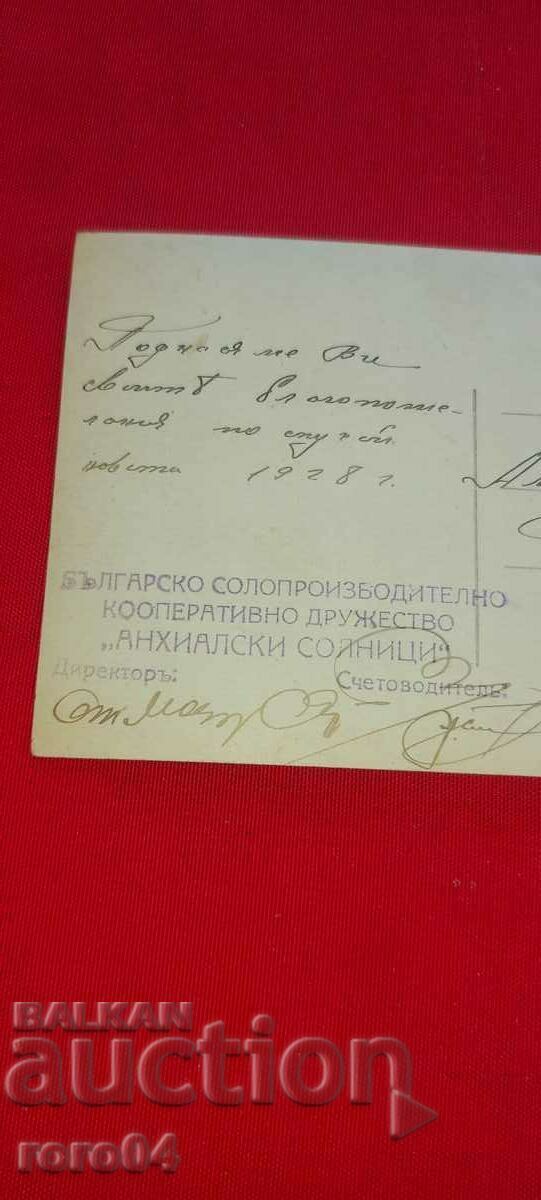 Поднасяме Ви
своитѣ благопоже-
лания по случай
новата 1928 г.
БЪЛГАРСКО СОЛОПРОИЗВОДИТЕЛНО
КООПЕРАТИВНО ДРУЖЕСТВО
„АНХИАЛСКИ СОЛНИЦИ“
Директоръ: Счетоводитель:
BALKAN
auction
roro04